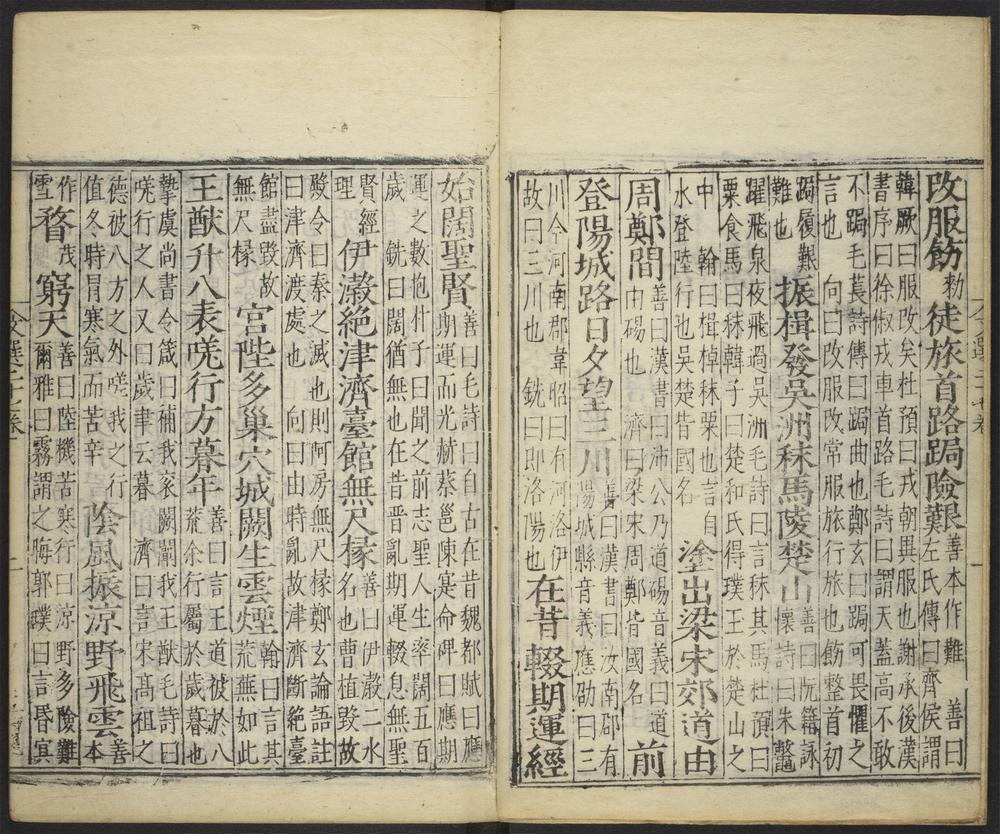 改服飭勑徒旅首路跼險艱善本作難 善曰
左氏傳曰齊侯謂
韓厥曰服改矣杜預曰戎朝異服也謝承後漢
書序曰徐俶戎車首路毛詩曰謂天蓋高不敢
不跼毛萇詩傳曰跼曲也鄭玄曰跼可畏懼之
言也 向曰改服改常服旅行旅也飭整首初
跼履艱
難也
振楫發吳洲秣馬陵楚山善曰阮籍詠
懷詩曰朱鼈
躍飛泉夜飛過吳洲毛詩曰言秣其馬杜預曰
粟食馬曰秣韓子曰楚和氏得璞王於楚山之
中 翰曰楫棹秣粟也言自
水登陸行也吳楚皆國名
塗出梁宋郊道由
周鄭間善曰漢書曰沛公乃道碭音義曰道
由碭也 濟曰梁宋周鄭皆國名
前
登陽城路日夕望三川善曰漢書曰汝南郡有
陽城縣音義應劭曰三
川今河南郡韋昭曰有河洛伊
故曰三川也 銑曰即洛陽也
在昔輟期運經
始闊聖賢善曰毛詩曰自古在昔魏都賦曰應
期運而光赫蔡邕陳寔命碑曰應期
運之數抱朴子曰聞之前志聖人生率闊五百
歲 銑曰闊猶無也在昔晉亂期運輟息無聖
賢經
理
伊瀔絕津濟臺館無尺椽善曰伊瀔二水
名也曹植毀故
殿令曰秦之滅也則阿房無尺椽鄭玄論語註
曰津濟渡處也 向曰由時亂故津濟斷絕臺
館盡毀故
無尺椽
宮陛多巢穴城闕生雲煙翰曰言其
荒蕪如此
王猷升八表嗟行方暮年善曰言王道被於八
荒余行屬於歲暮也
摯虞尚書令箴曰補我袞闕闡我王猷毛詩曰
嗟行之人又曰歲聿云暮 濟曰言宋髙祖之
德被八方之外嗟我之行
值冬時冒寒氣而苦辛
陰風振凉野飛雲善
本
作
雪
瞀茂窮天善曰陸機苦寒行曰凉野多險難
爾雅曰霧謂之晦郭璞曰言昏冥